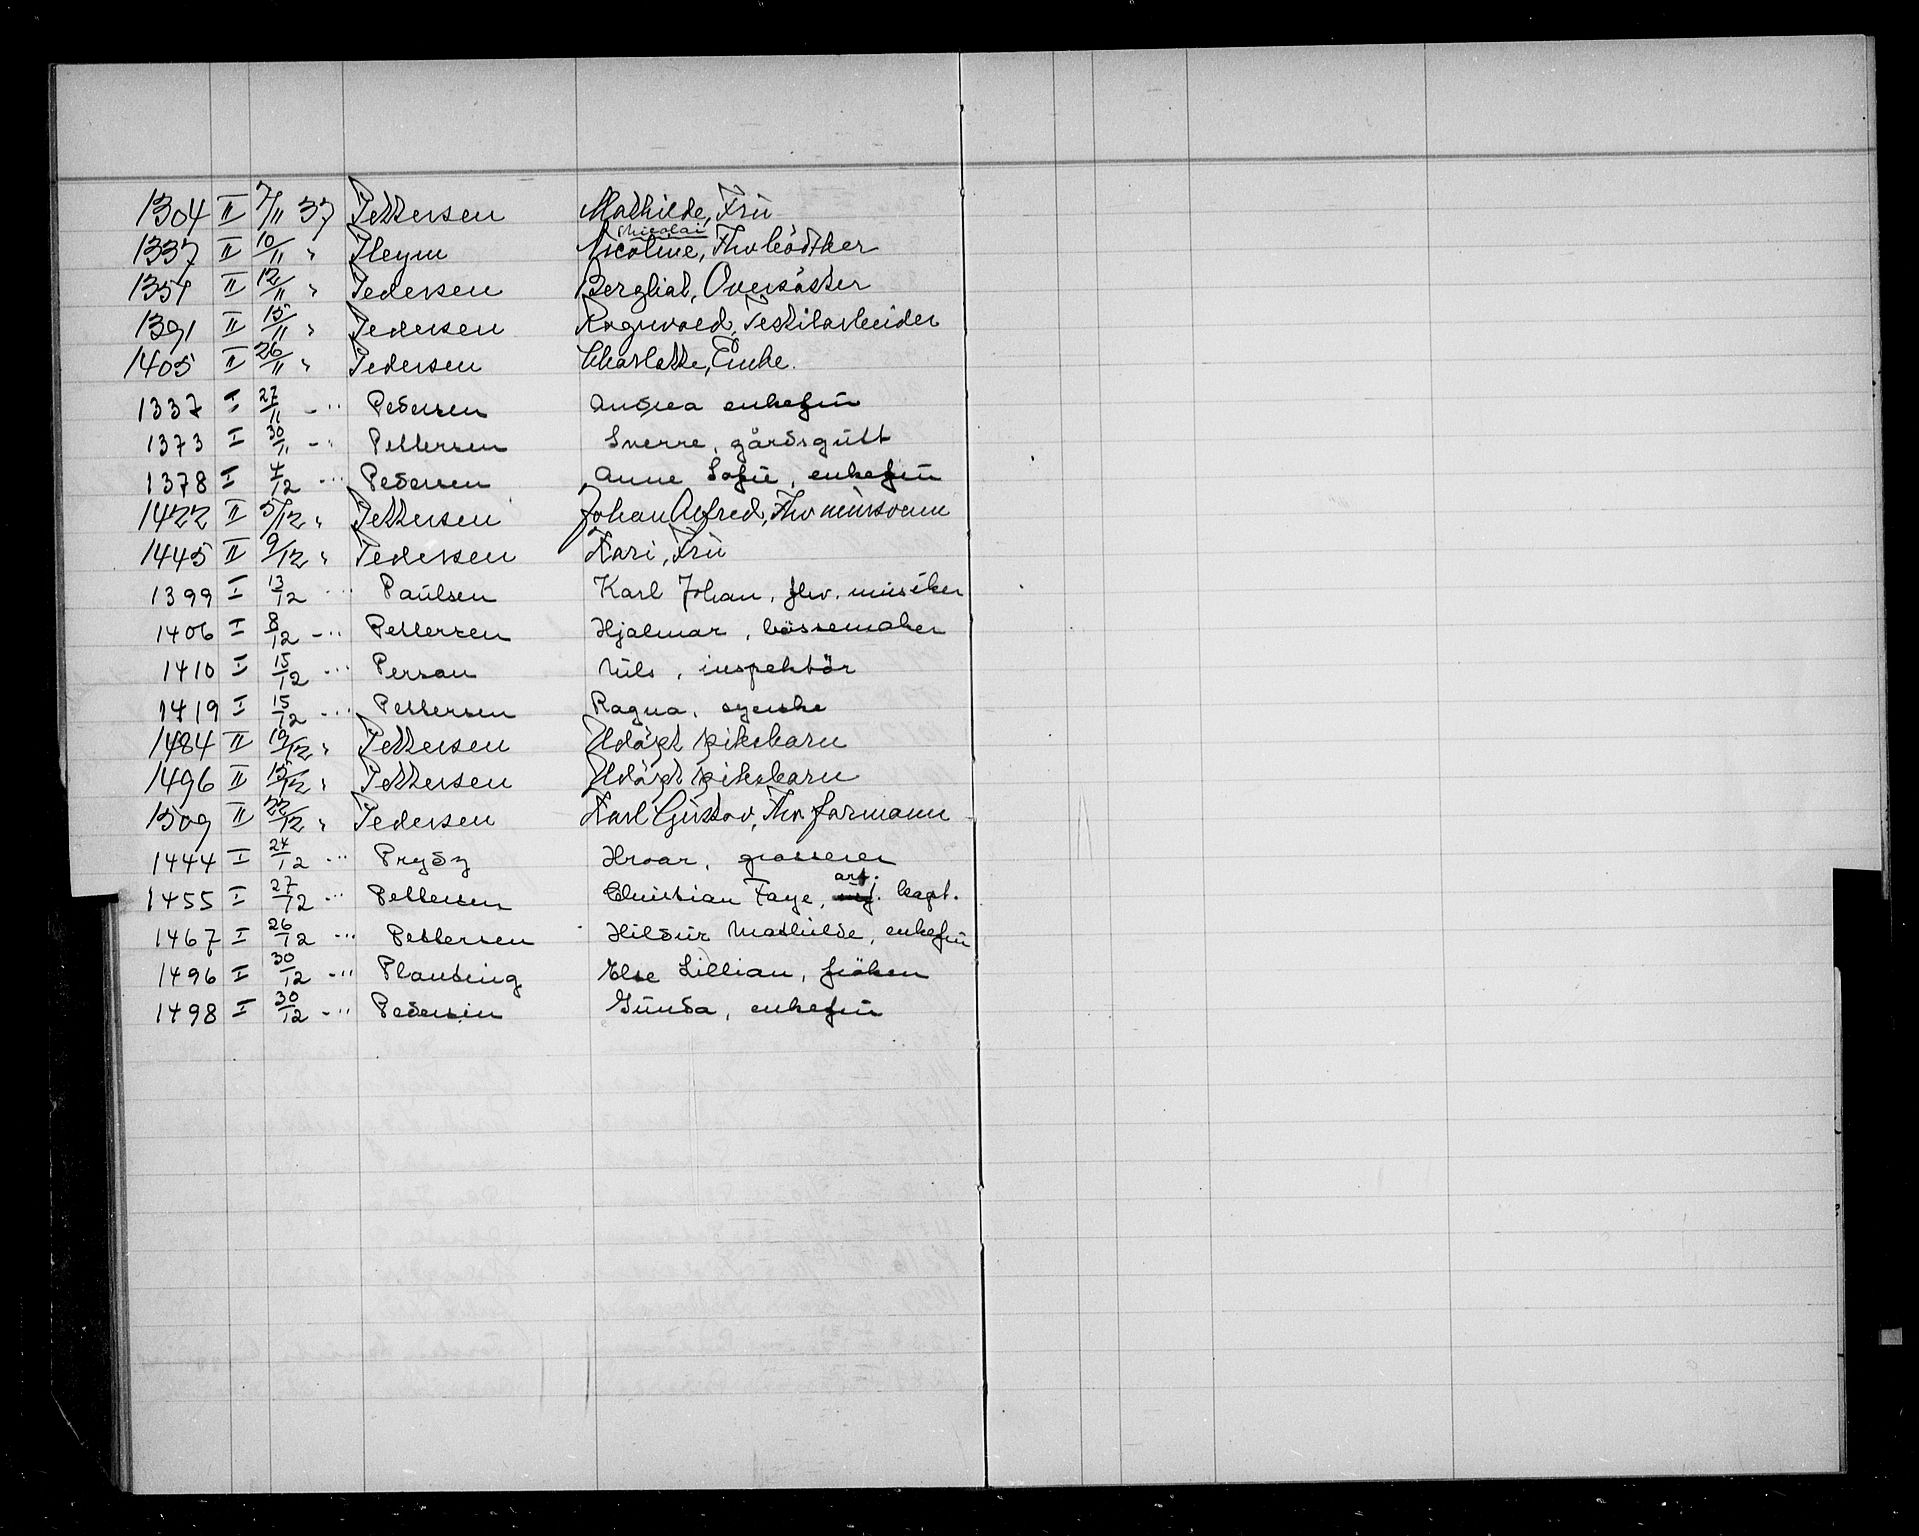 1304 II 7/11 37 Pettersen Mathilde, Frü
Nicolai
1337 II 10/11 " Pleym Nicoline, Fhv bödtker
1354 II 12/11 " Pedersen Bergliot, Oversöster
1391 II 15/11 " Pedersen Ragnvald, Textilarbeider
1405 II 26/11 " Pedersen Charlotte, Enke.
1337 I 27/11 -"- Pedersen Andrea enkefrü
1373 I 30/11 -"- Pettersen Sverre, gårdsgütt
1378 I 4/12 -"- Pedersen Anne Sofie, enkefrü
1422 II 5/12 " Pettersen Johan Alfred, Fhv mürsvenn
1445 II 9/12 " Pedersen Kari, Frü
1399 I 13/12 -"- Paülsen Karl Johan, fhv. müsiker
1406 I 8/12 -"- Pettersen Hjalmar, bössemaker
1410 I 15/12 -"- Persson Nils, inspektör
1419 I 15/12 -"- Pettersen Ragna, syerske
1484 II 10/12 " Pettersen Udöpt pikebarn
1496 II 15/12 " Pettersen Udöpt pikebarn
1509 II 22/12 " Pedersen Karl Güstav, Fhv formann
1444 I 24/12 -"- Prydz Hroar, grosserer
art.
1455 I 27/12 -"- Pettersen Christian Faye, inf. kapt.
1467 I 26/12 -"- Pettersen Hildür Mathilde, enkefrü
1496 I 30/12 -"- Planting Else Lillian, fröken
1498 I 30/12 -"- Pedersen Günda, enkefrü